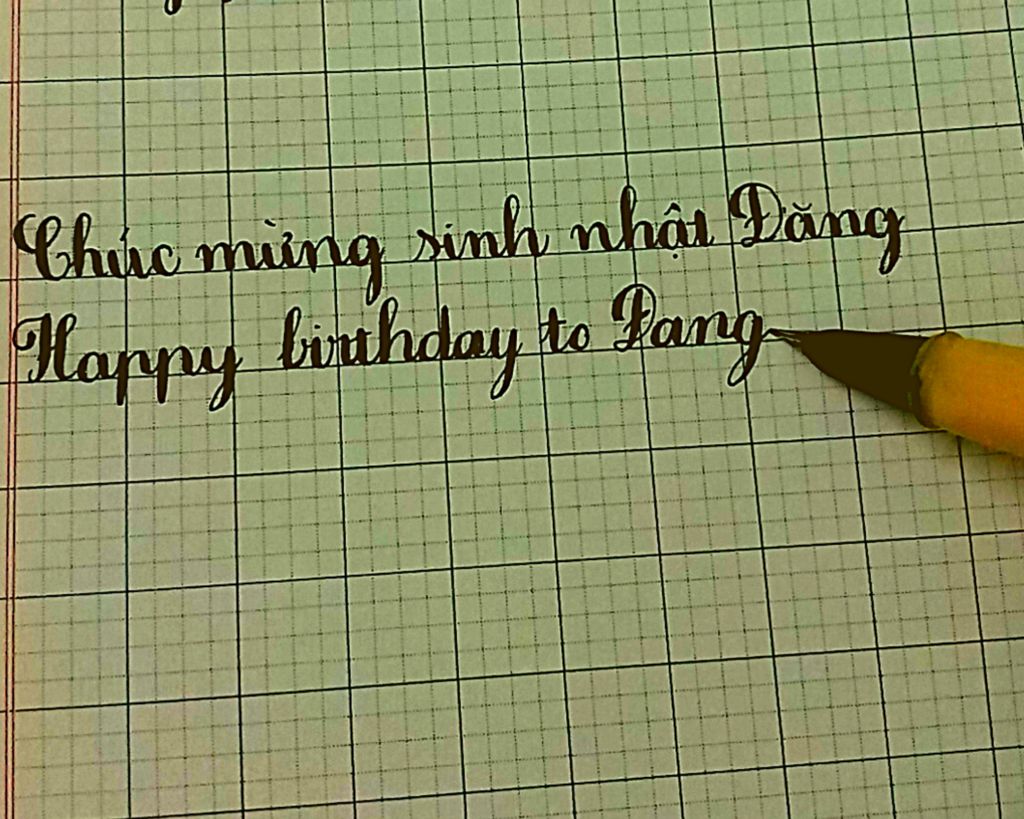 Chúc mừng sinh nhật Đăng
Happy birthday to Đang